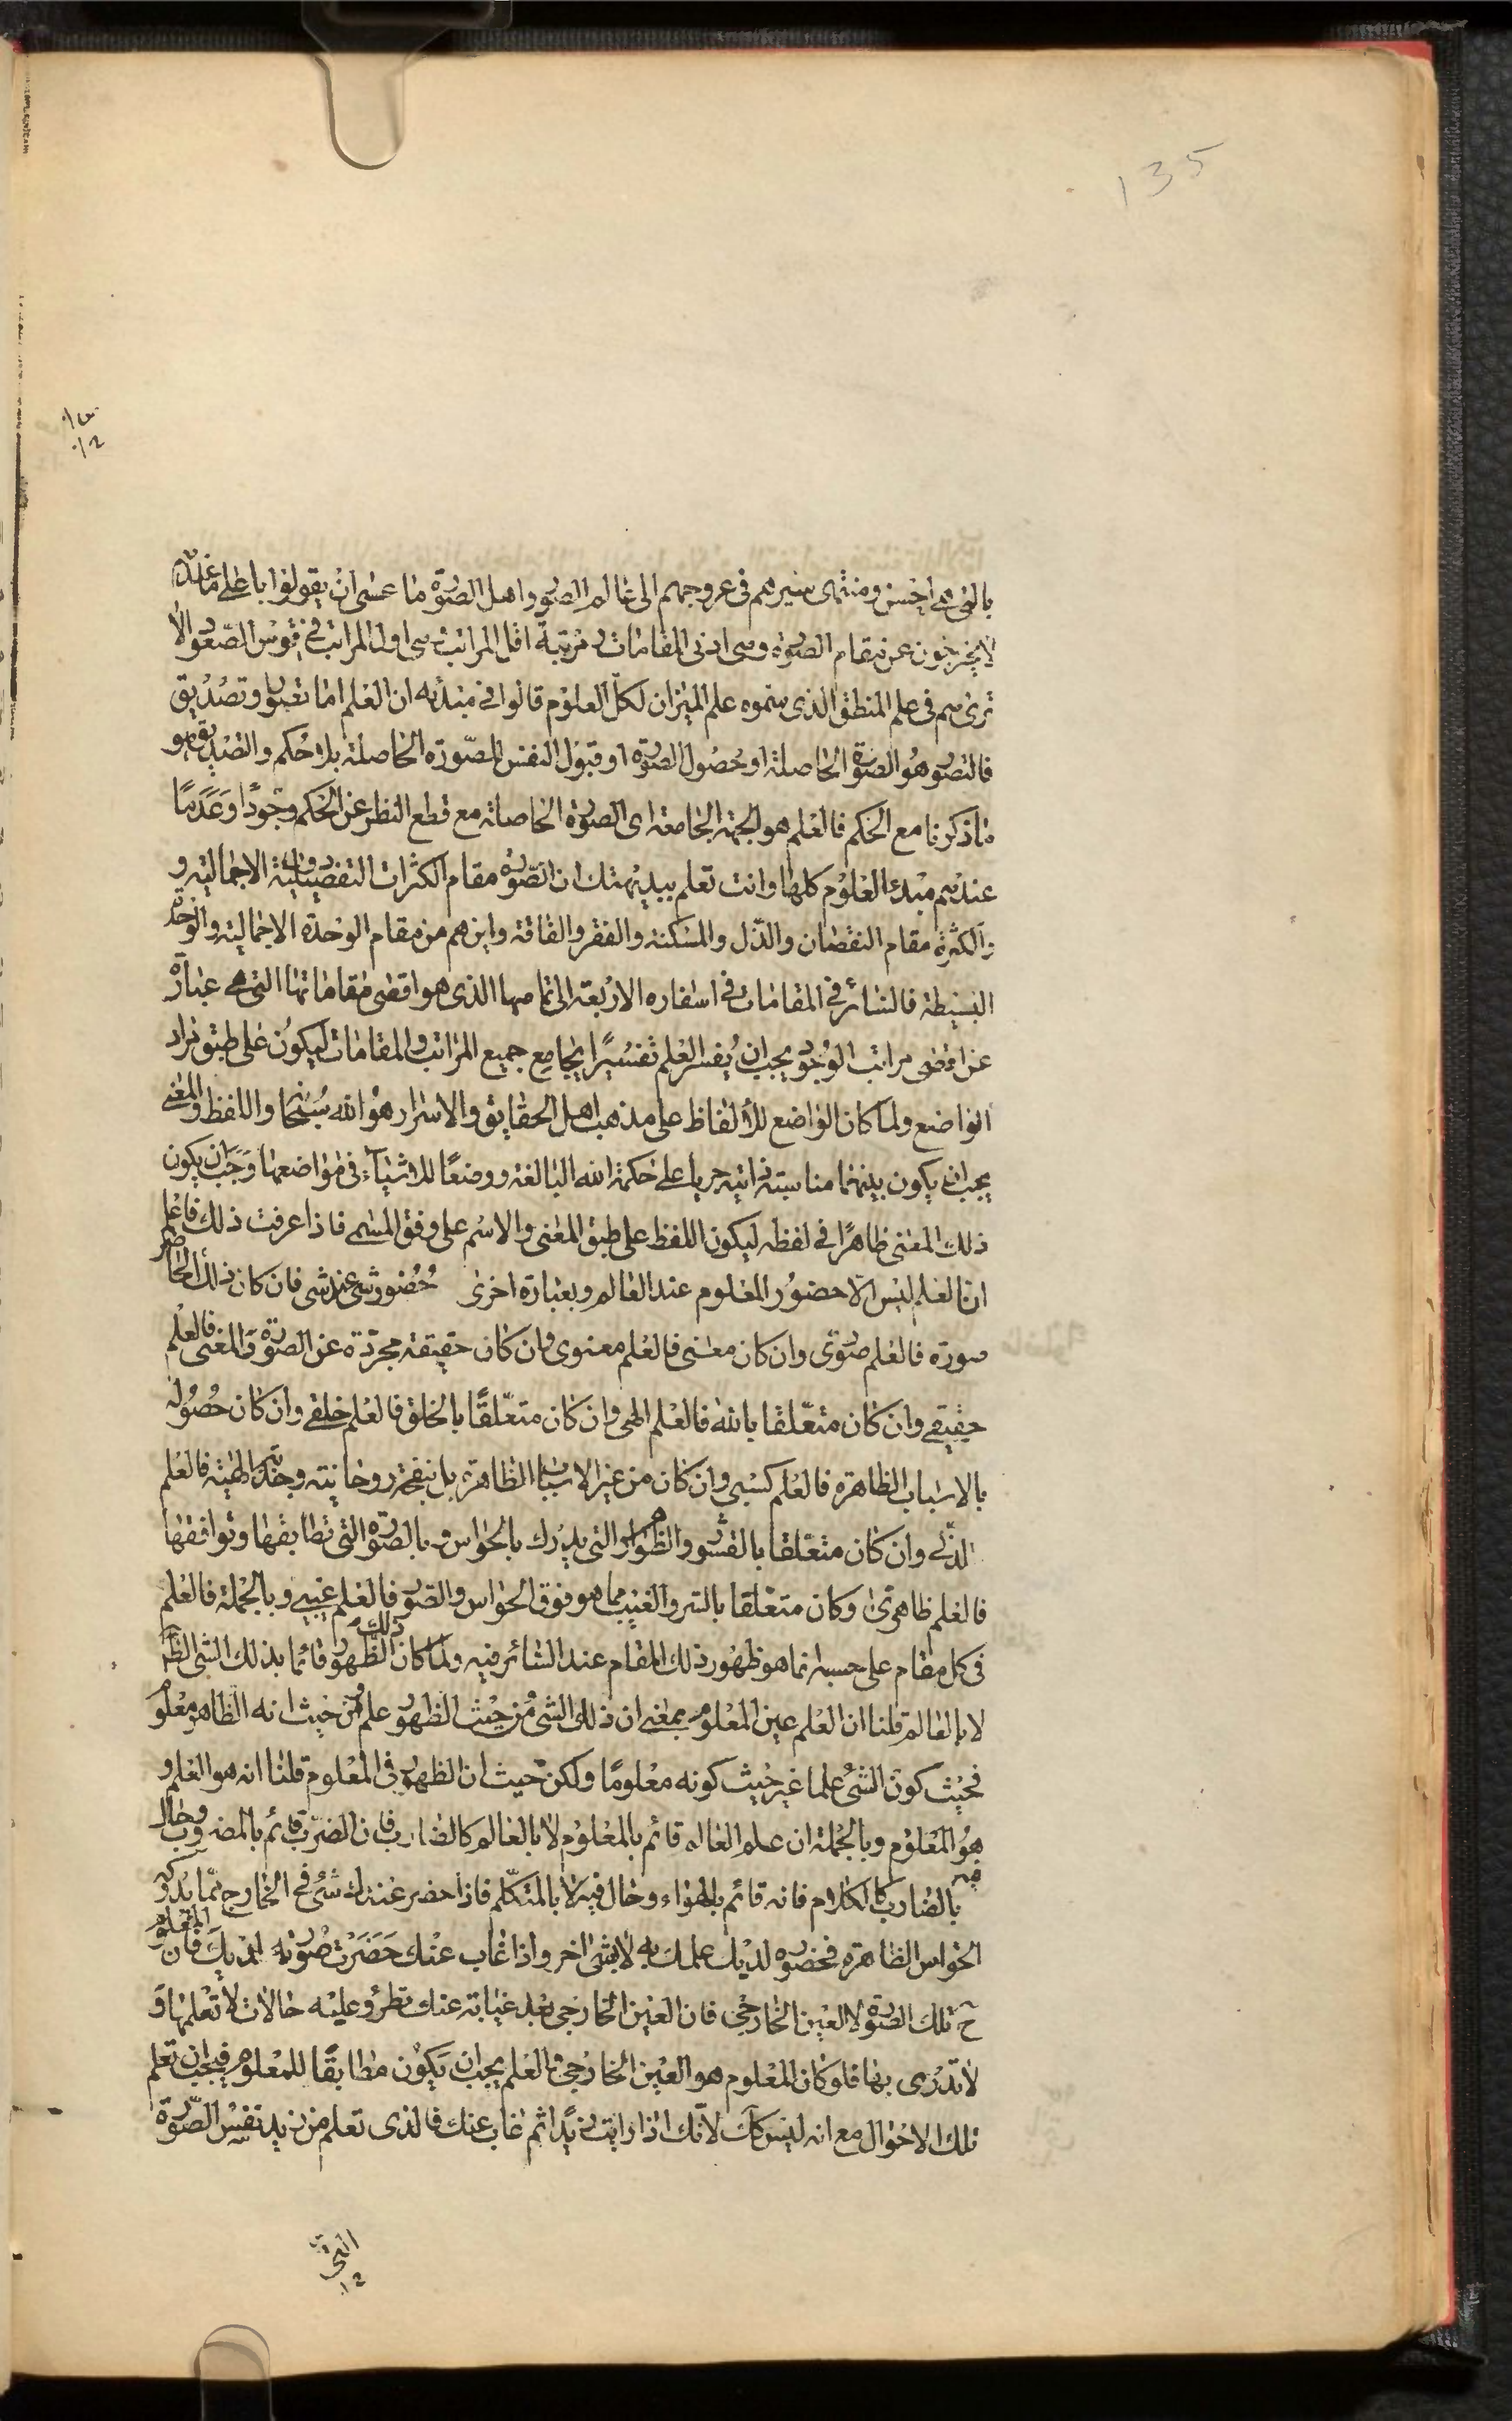 135
بالتى هى احسن ومنتهى سيرهم فى عروجهم الى عالم الصور واهل الصورة ما عسى ان يقولوا باعلى ما عندهم
لا يخرجون عن مقام الصورة وهى ادنى المقامات ومرتبة اقل المراتب هى اول المراتب فى قوس الصعود الا
ترى هم فى علم المنطق الذى سموه علم الميزان لكل العلوم قالوا فى مبدئه ان العلم اما تصور او تصديق
فالتصور هو الصورة الحاصلة او حصول الصورة او قبول النفس للصورة الحاصلة بلا حكم والتصديق هو
ما ذكرنا مع الحكم فالعلم هو الجهة الجامعة اى الصورة الحاصلة مع قطع النظر عن الحكم وجودا وعدما
عندهم مبدء العلوم كلها وانت تعلم ببديهتك ان الصورة مقام الكثرات التفصيلية الاجمالية و
الكثرة مقام النقصان والذل والمسكنة والفقر والفاقة واين هم من مقام الوحدة الاجمالية والوحدة
البسيطة فالسائر فى المقامات فى اسفاره الاربعة الى تمامها الذى هو اقصى مقاماتها التى هى عبارة
عن اقصى مراتب الوجود يجب ان يفسر العلم تفسيرا يجامع جميع المراتب والمقامات ليكون على طبق مراد
الواضع ولما كان الواضع للألفاظ على مذهب اهل الحقايق والاسرار هو الله سبحانه واللفظ والمعنى
يجب ان يكون بينهما مناسبة ذاتية جريا على حكمة الله البالغة ووضعا للاشياء فى مواضعها وجب ان يكون
ذلك المعنى ظاهرا فى لفظه ليكون اللفظ على طبق المعنى والاسم على وفق المسمى فاذا عرفت ذلك فاعلم
ان العلم ليس الا حضور المعلوم عند العالم وبعبارة اخرى حضور شى عند شى فان كان ذلك الحاضر
صورة فالعلم صورى وان كان معنى فالعلم معنوى وان كان حقيقة مجردة عن الصورة والمعنى فالعلم
حقيقى وان كان متعلقا بالله فالعلم الهى وان كان متعلقا بالخلق فالعلم خلقى وان كان حصوله
بالاسباب الظاهرة فالعلم كسبى وان كان من غير الاسباب الظاهرة بل بنفحة روحانية وجذبة الهية فالعلم
لدنى وان كان متعلقا بالقشور والظواهر التى يدرك بالحواس وبالصورة التى تطابقها وتوافقها
فالعلم ظاهرى وكان متعلقا بالسر والغيب مما هو فوق الحواس والصور فالعلم غيبى وبالجملة فالعلم
فى كل مقام على حسبه انما هو ظهور ذلك المقام عند السائر فيه ولما كان ذلك الظهور قائما بذلك الشى الظاهر
لا بالعالم قلنا ان العلم عين المعلوم بمعنى ان ذلك الشى من حيث الظهور علم ومن حيث انه الظاهر معلوم
فحيث كون الشئ علما غير حيث كونه معلوما ولكن حيث ان الظهور فى المعلوم قلنا انه هو العلم و
هو المعلوم وبالجملة ان علم العالم قائم بالمعلوم لا بالعالم كالضارب فان الضرب قائم بالمضروب وحال
فيه بالضارب كالكلام فانه قائم بالهواء وحال فيه لا بالمتكلم فاذا حضر عندك شئ فى الخارج مما يدركه
الحواس الظاهرة فحضوره لديك علمك به لا بشى اخر واذا غاب عنك حضرت صورته لديك فان المعلوم
ح تلك الصورة لا العين الخارجى فان العين الخارجى بعد غيابته عنك تطرؤ عليه حالات لا تعلمها و
لا تدرى بها فلو كان المعلوم هو العين الخارجى والعلم يجب ان يكون مطابقا للمعلوم فيجب ان تعلم
تلك الاحوال مع انه ليس كك لانك اذا رايت زيدا ثم غاب عنك فالذى تعلم من زيد نفس الصورة
التى